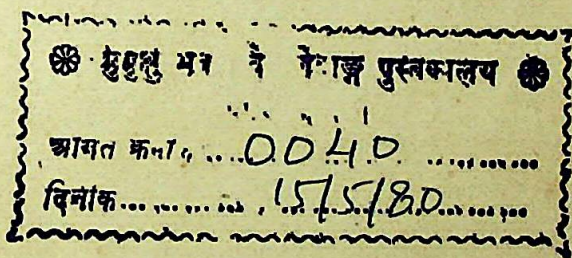 मुमुक्षु भवन वेद वेदाङ्ग पुस्तकालय
आगत क्रमांक ....0040...........
दिनांक............15/5/80............